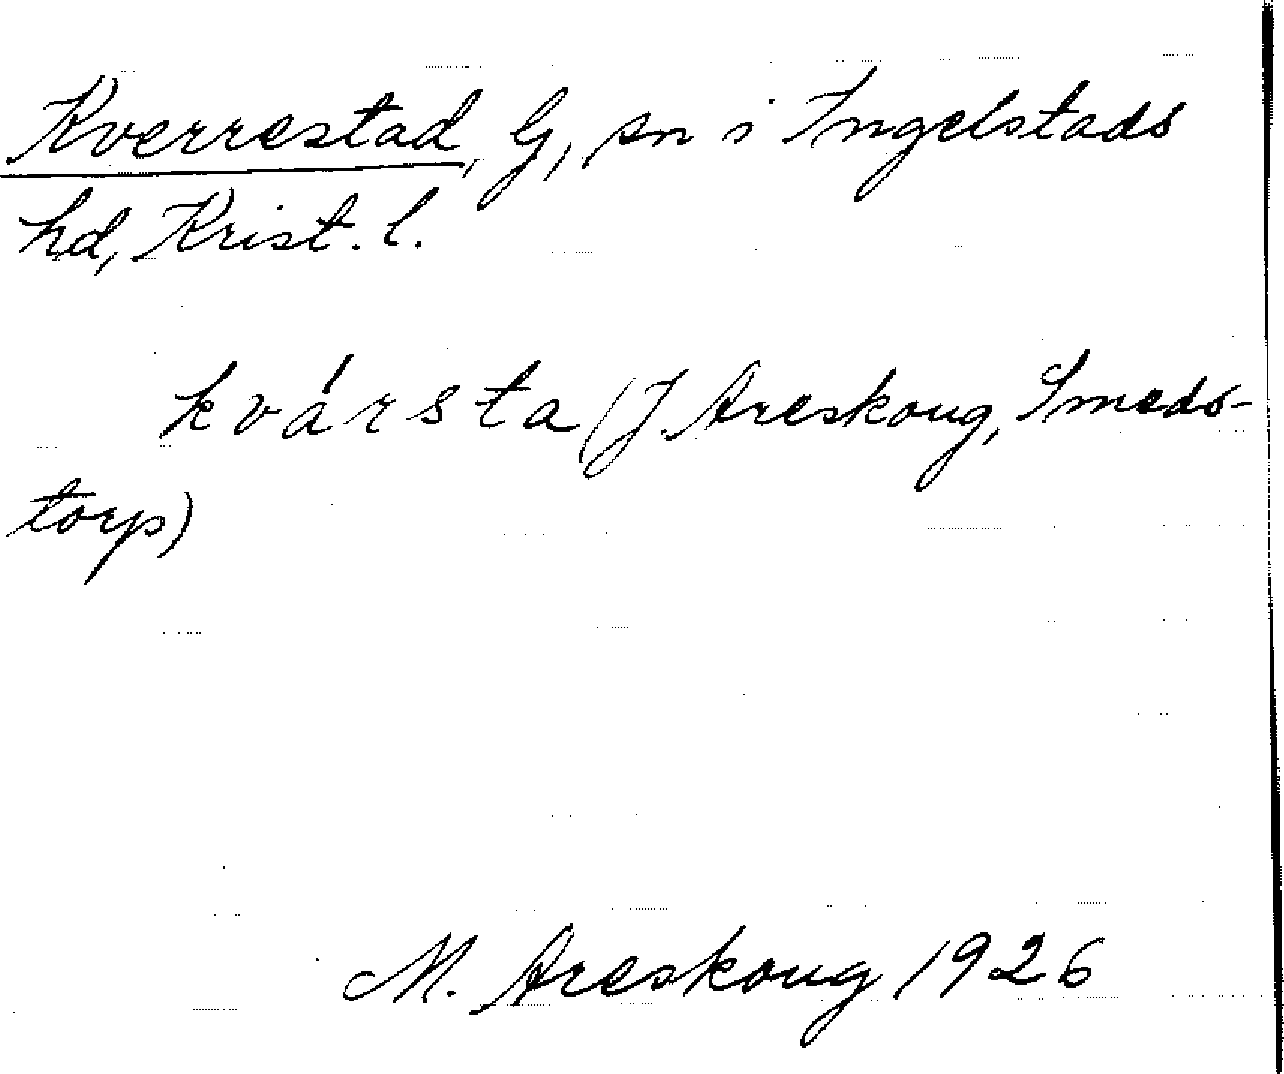 Kverrestad, G, sn i Ingelstads
hd, Krist. l.
kvársta (J. Areskoug, Smeds-
torp)
M. Areskoug 1926